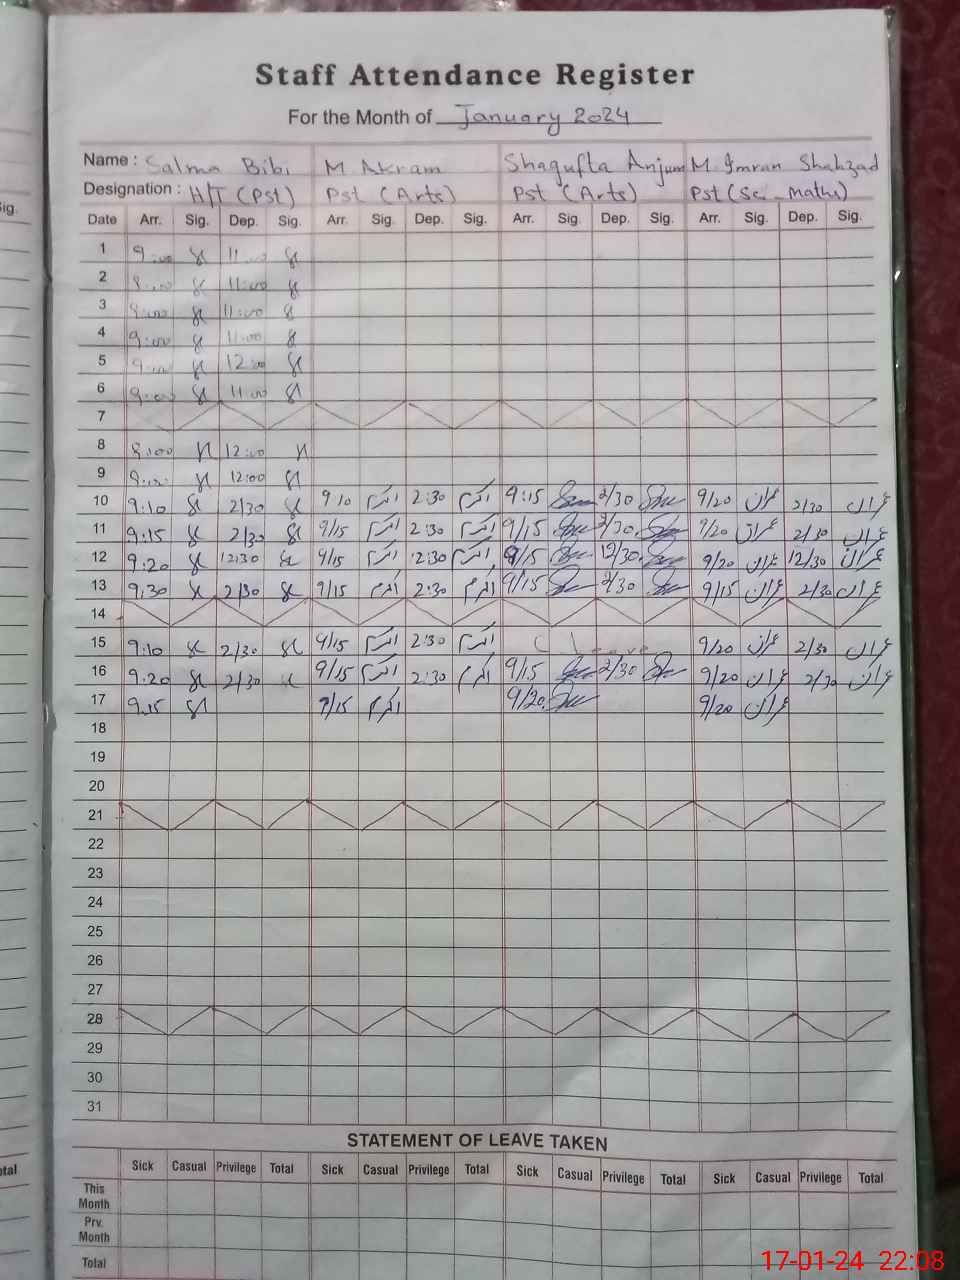 Staff Attendance Register
For the Month of January 2024
Name : Salma Bibi M Akram Shagufta Anjum M. Imran Shahzad
Designation : H/T (Pst) Pst (Arts) Pst (Arts) Pst (Sci - Maths)
Sig.
Date Arr. Sig. Dep. Sig. Arr. Sig. Dep. Sig. Arr. Sig. Dep. Sig. Arr. Sig. Dep. Sig.
1 9:00 11:00
2 11:00
3 11:00
4 9:00 11:00
5 12:00
6 9:00 11:00
7
8 12:00
9 12:00
10 9:10 2/30 9 10 اکرم 2:30 اکرم 9:15 2/30 9/20 عمران 2/30 عمران
11 9:15 2/30 9/15 اکرم 2:30 اکرم 9/15 2/30 9/20 عمران 2/30 عمران
12 9:20 12:30 9/15 اکرم 12:30 اکرم 9/15 12/30 9/20 عمران 12/30 عمران
13 9:30 2/30 9/15 اکرم 2:30 اکرم 9/15 2/30 9/15 عمران 2/30 عمران
14
15 9:10 2/30 9/15 اکرم 2:30 اکرم C leave 9/20 عمران 2/30 عمران
16 9:20 2/30 9/15 اکرم 2:30 اکرم 9/15 2/30 9/20 عمران 2/30 عمران
17 9.15 9/15 اکرم 9/20 9/20 عمران
18
19
20
21
22
23
24
25
26
27
28
29
30
31
STATEMENT OF LEAVE TAKEN
Sick Casual Privilege Total Sick Casual Privilege Total Sick Casual Privilege Total Sick Casual Privilege Total
This Month
Prv. Month
Total
17-01-24 22:08